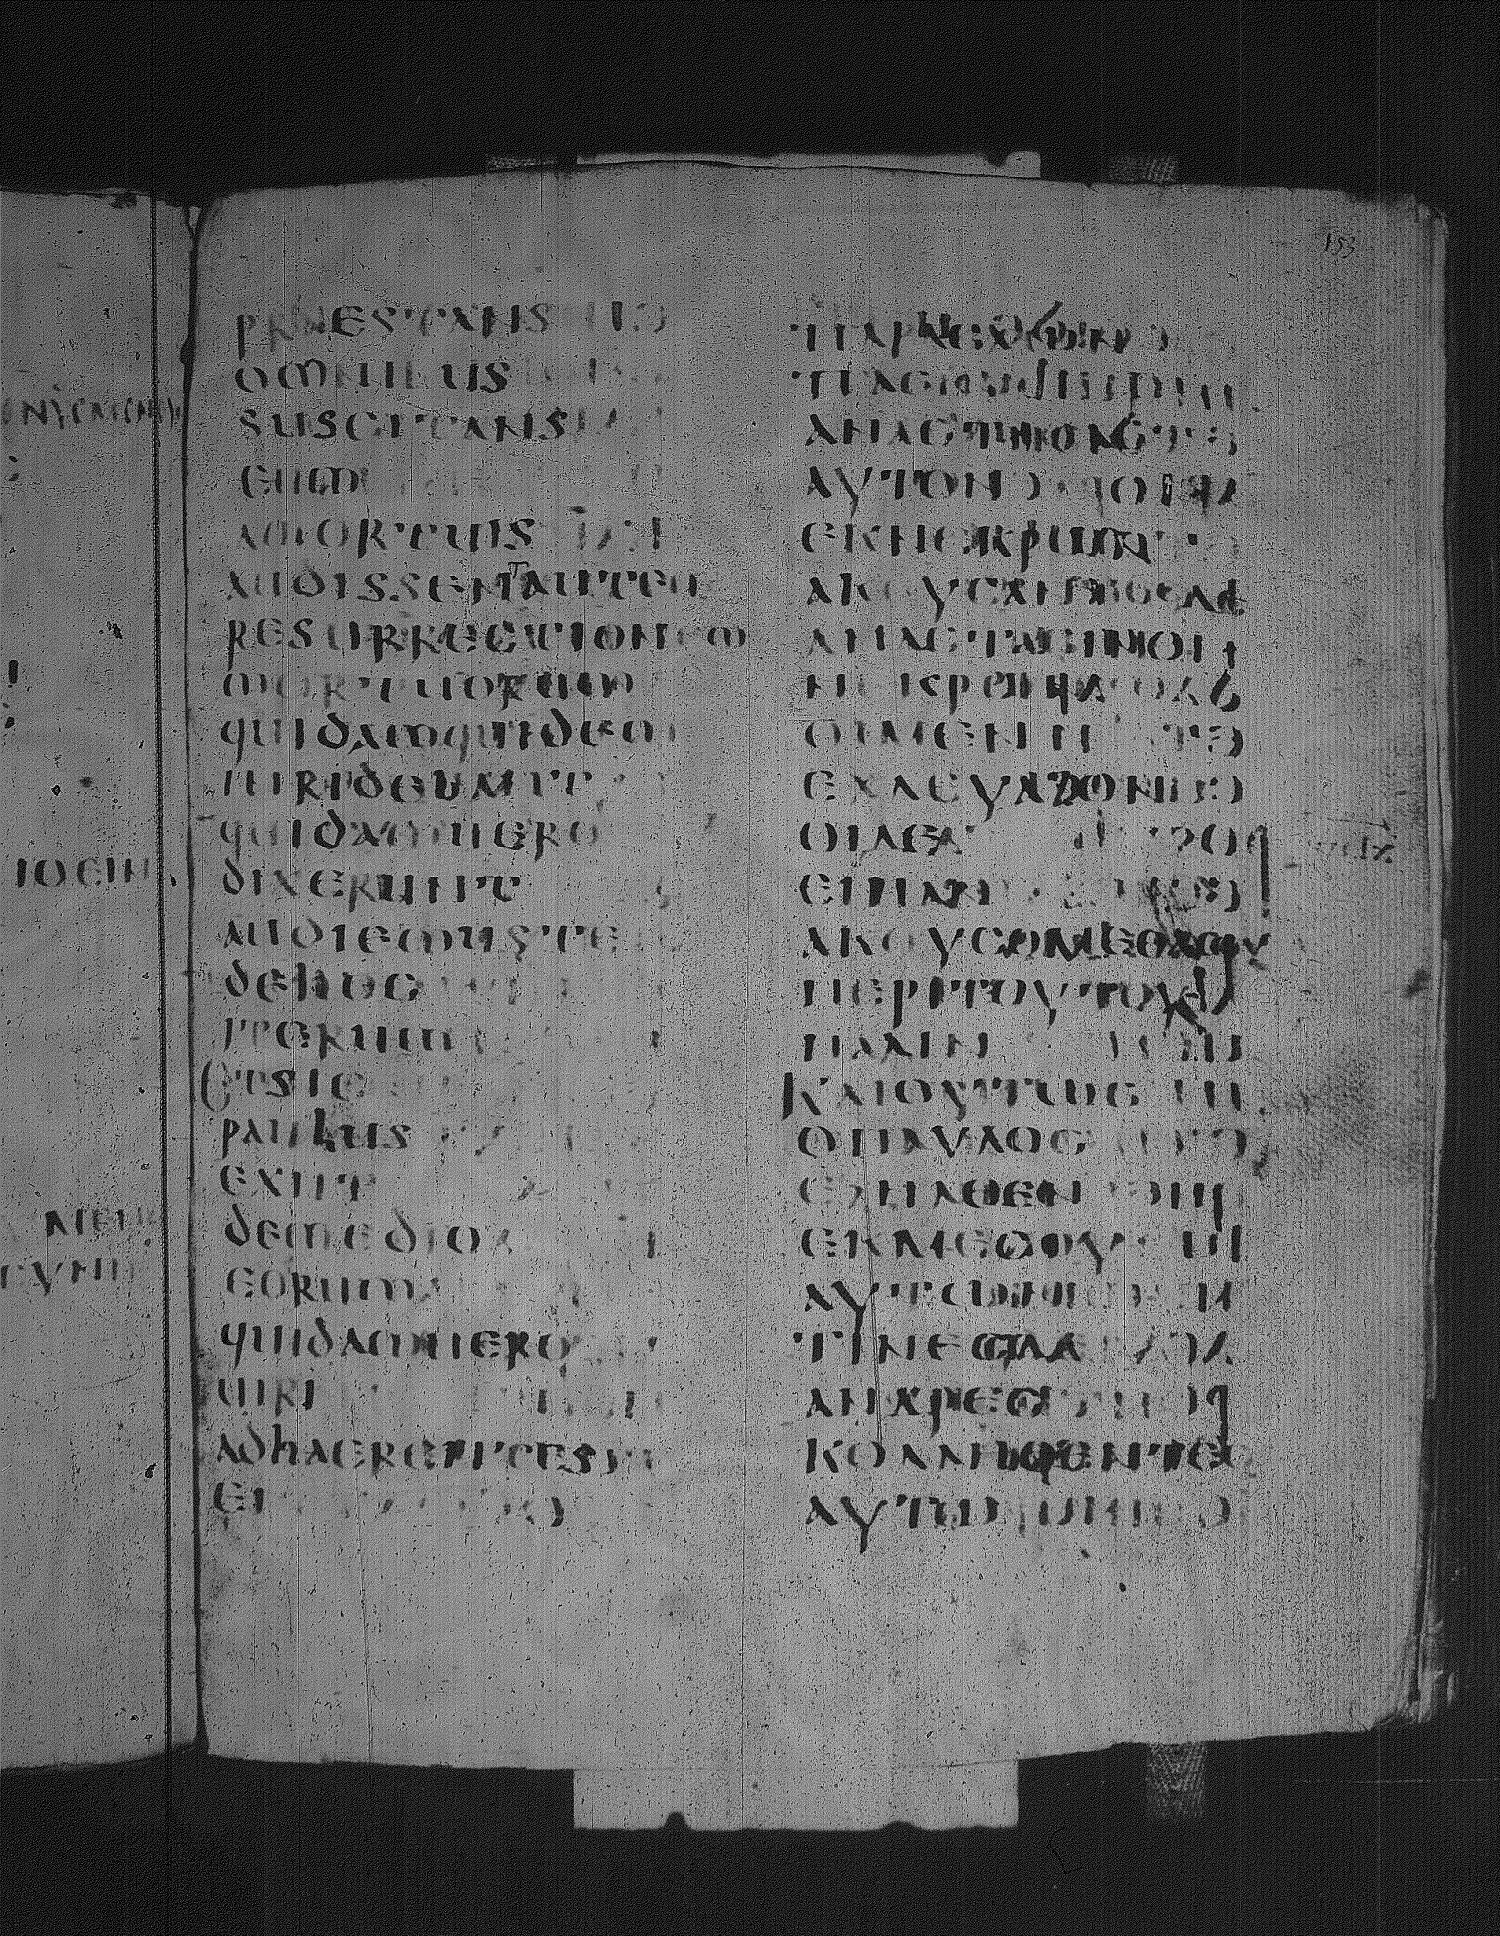 153
omnibus
suscitans
eum
amortuis
audissentautem
resurrectionem
mortuorum
quidamquidem
inridebant
quidamuero
dixerunt
audiemuste
dehoc
iterum
etsic
paulus
exiit
demedio
eorum
quidamuero
uiri
adhaerentes
ei
ΠΑCΙΝ
ΑΝΑCΤΗCΑC
ΑΥΤΟΝ
ΕΚΝΕΚΡΩΝ
ΑΚΟΥCΑΝΤΕCΔΕ
ΑΝΑCΤΑCΙΝ
ΝΕΚΡΩΝ
ΟΙΜΕΝ
ΕΧΛΕΥΑΖΟΝ
ΟΙΔΕ
ΕΙΠΑΝ
ΑΚΟΥCΟΜΕΘΑCΟΥ
ΠΕΡΙΤΟΥΤΟΥ
ΠΑΛΙΝ
ΚΑΙΟΥΤΩC
ΟΠΑΥΛΟC
ΕΞΗΛΘΕΝ
ΕΚΜΕCΟΥ
ΑΥΤΩΝ
ΤΙΝΕCΔΕ
ΑΝΔΡΕC
ΚΟΛΛΗΘΕΝΤΕC
ΑΥΤΩ